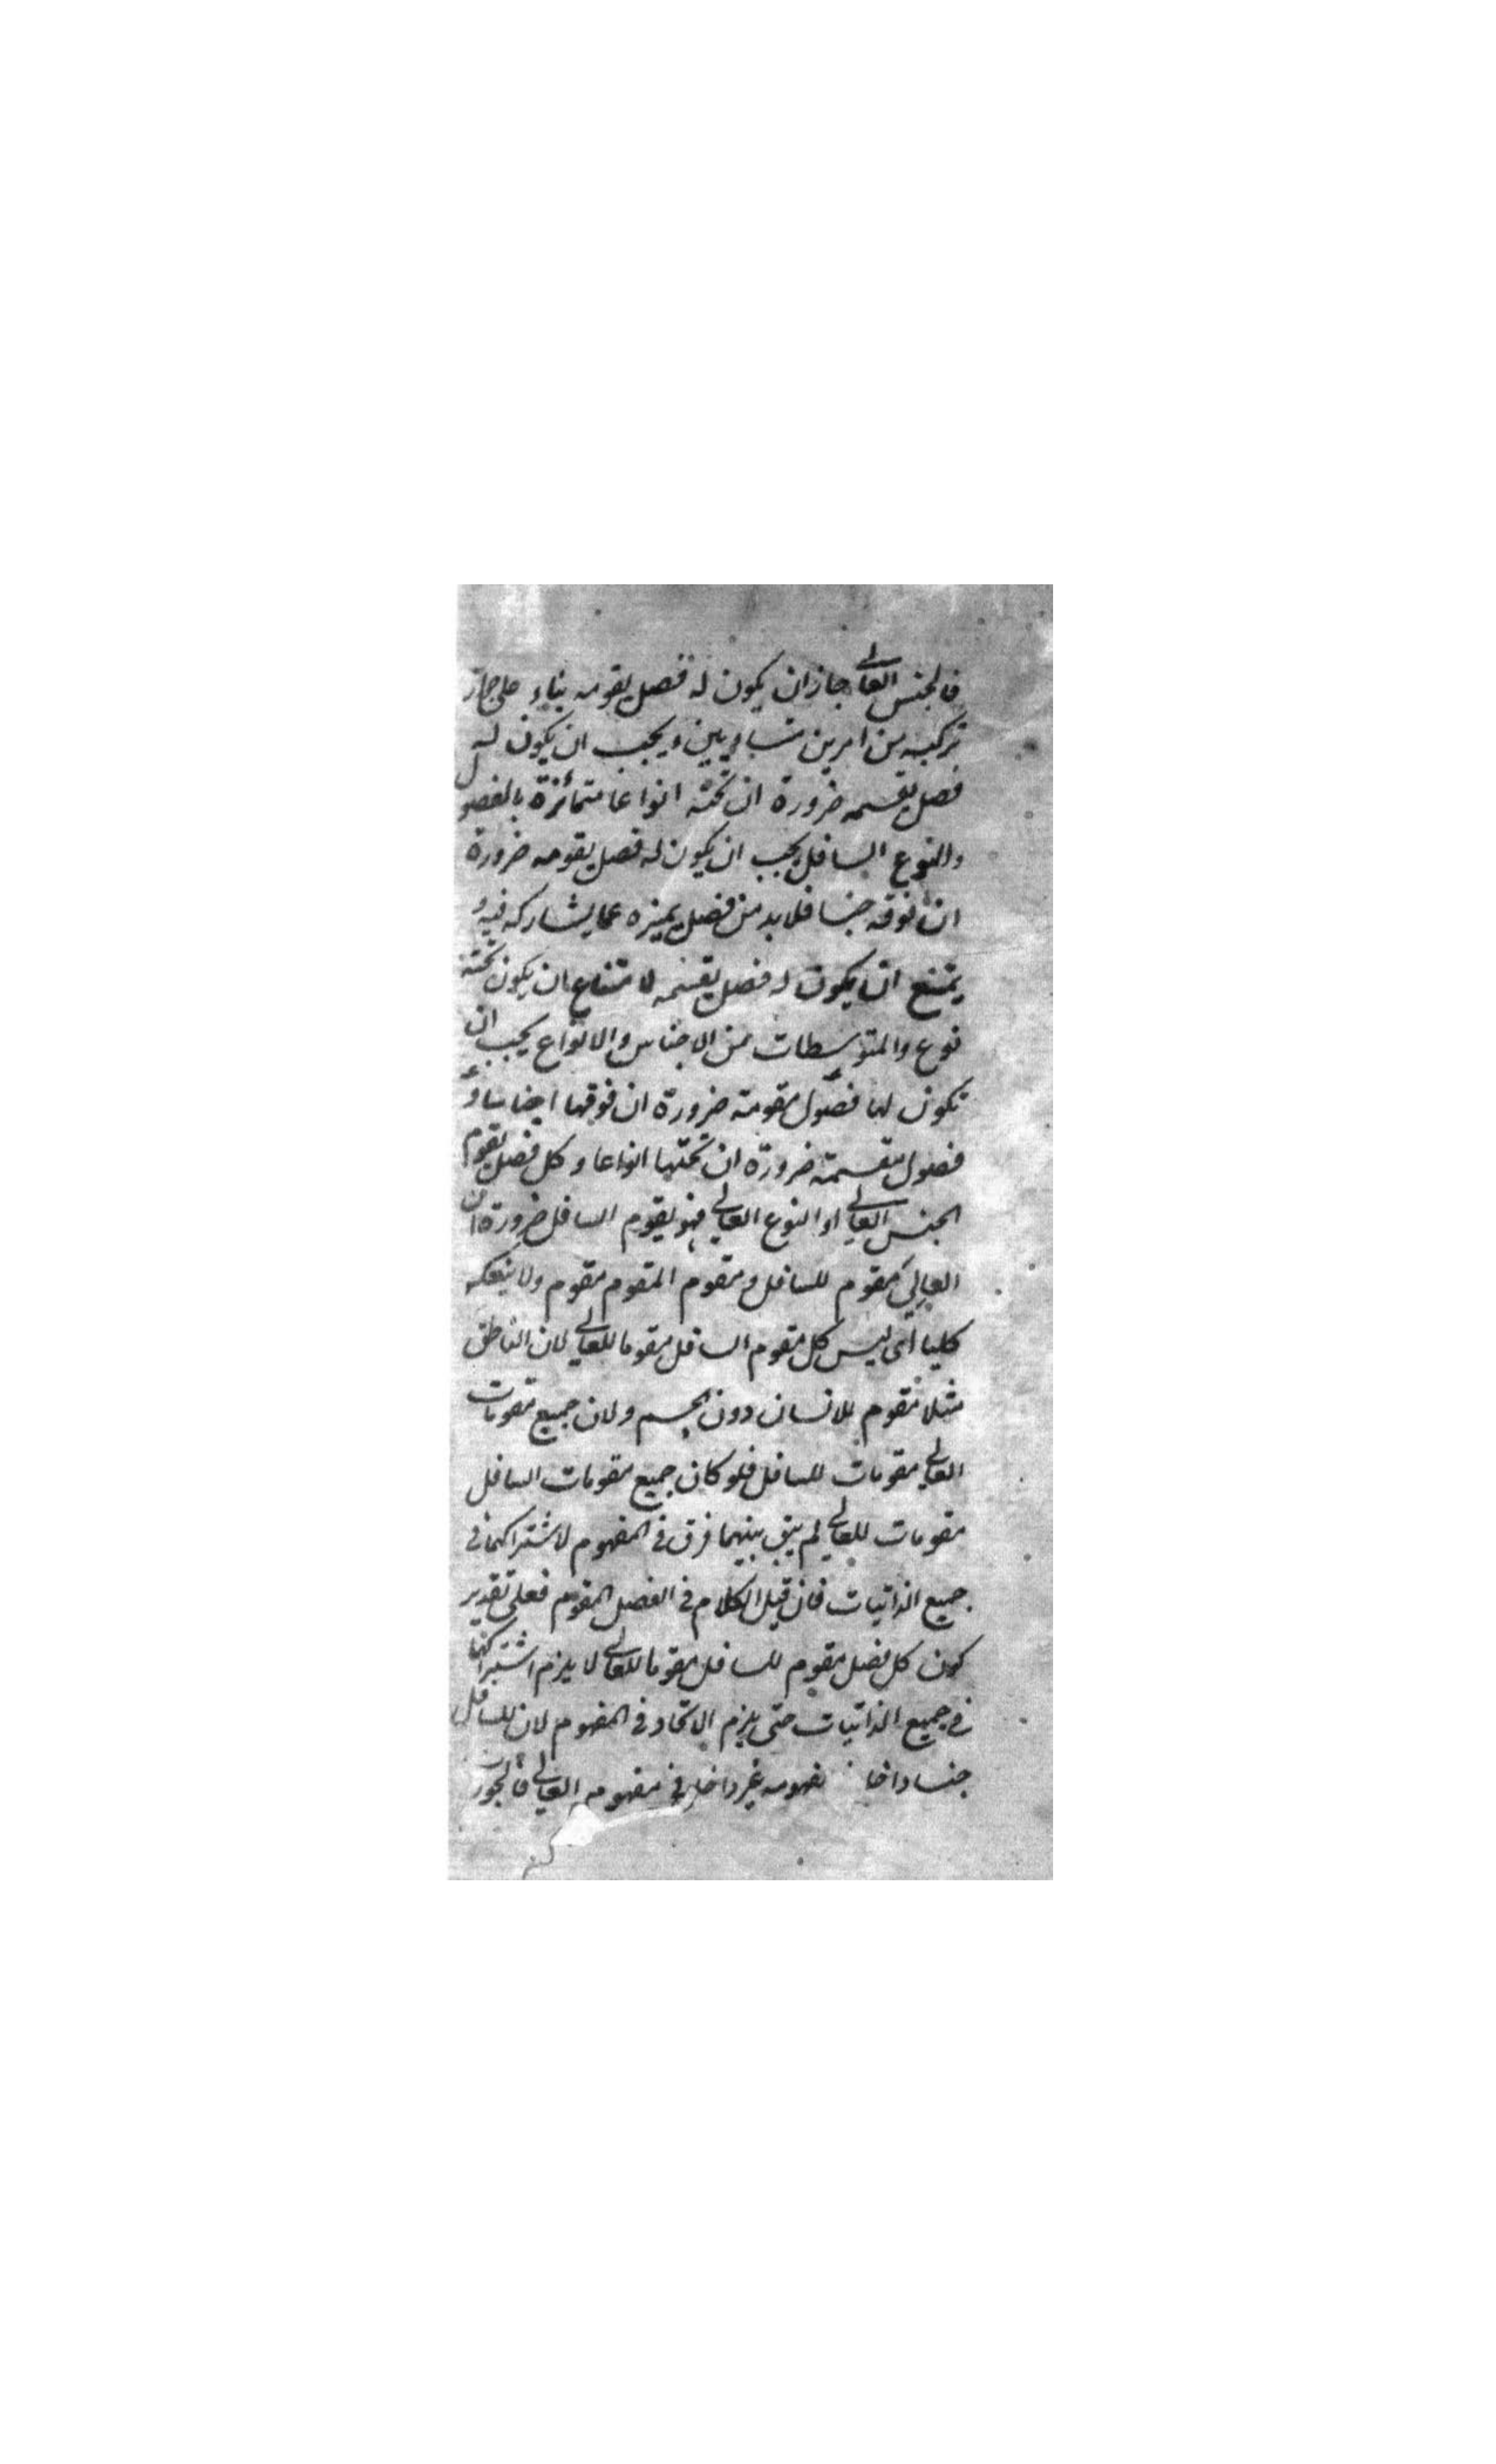 فالجنس العالي جاز ان يكون له فصل يقومه بناء على جواز
تركبه من امرين متساويين ويجب ان يكون له
فصل يقسمه ضرورة ان تحته انواعا متمائزة بالفصول
والنوع السافل يجب ان يكون له فصل يقومه ضرورة
ان فوقه جنسا فلا بد من فصل يميزه عما يشاركه فيه و
يمتنع ان يكون له فصل يقسمه لامتناع ان يكون تحته
نوع والمتوسطات من الاجناس والانواع يجب ان
تكون لها فصول مقومة ضرورة ان فوقها اجناسا و
فصول مقسمة ضرورة ان تحتها انواعا وكل فصل يقوم
الجنس العالي او النوع العالي فهو يقوم السافل ضرورة ان
العالي مقوم للسافل ومقوم المقوم مقوم ولا ينعكس
كليا اى ليس كل مقوم السافل مقوما للعالي لان الناطق
مثلا مقوم للانسان دون الجسم ولان جميع مقومات
العالي مقومات للسافل فلو كان جميع مقومات السافل
مقومات للعالي لم يبق بينهما فرق في المفهوم لاشتراكهما في
جميع الذاتيات فان قيل الكلام في الفصل المقوم فعلى تقدير
كون كل فصل مقوم للسافل مقوما للعالي لا يلزم اشتراكهما
في جميع الذاتيات حتى يلزم الاتحاد في المفهوم لان للسافل
جنسا داخلا مفهومه غير داخل في مفهوم العالي